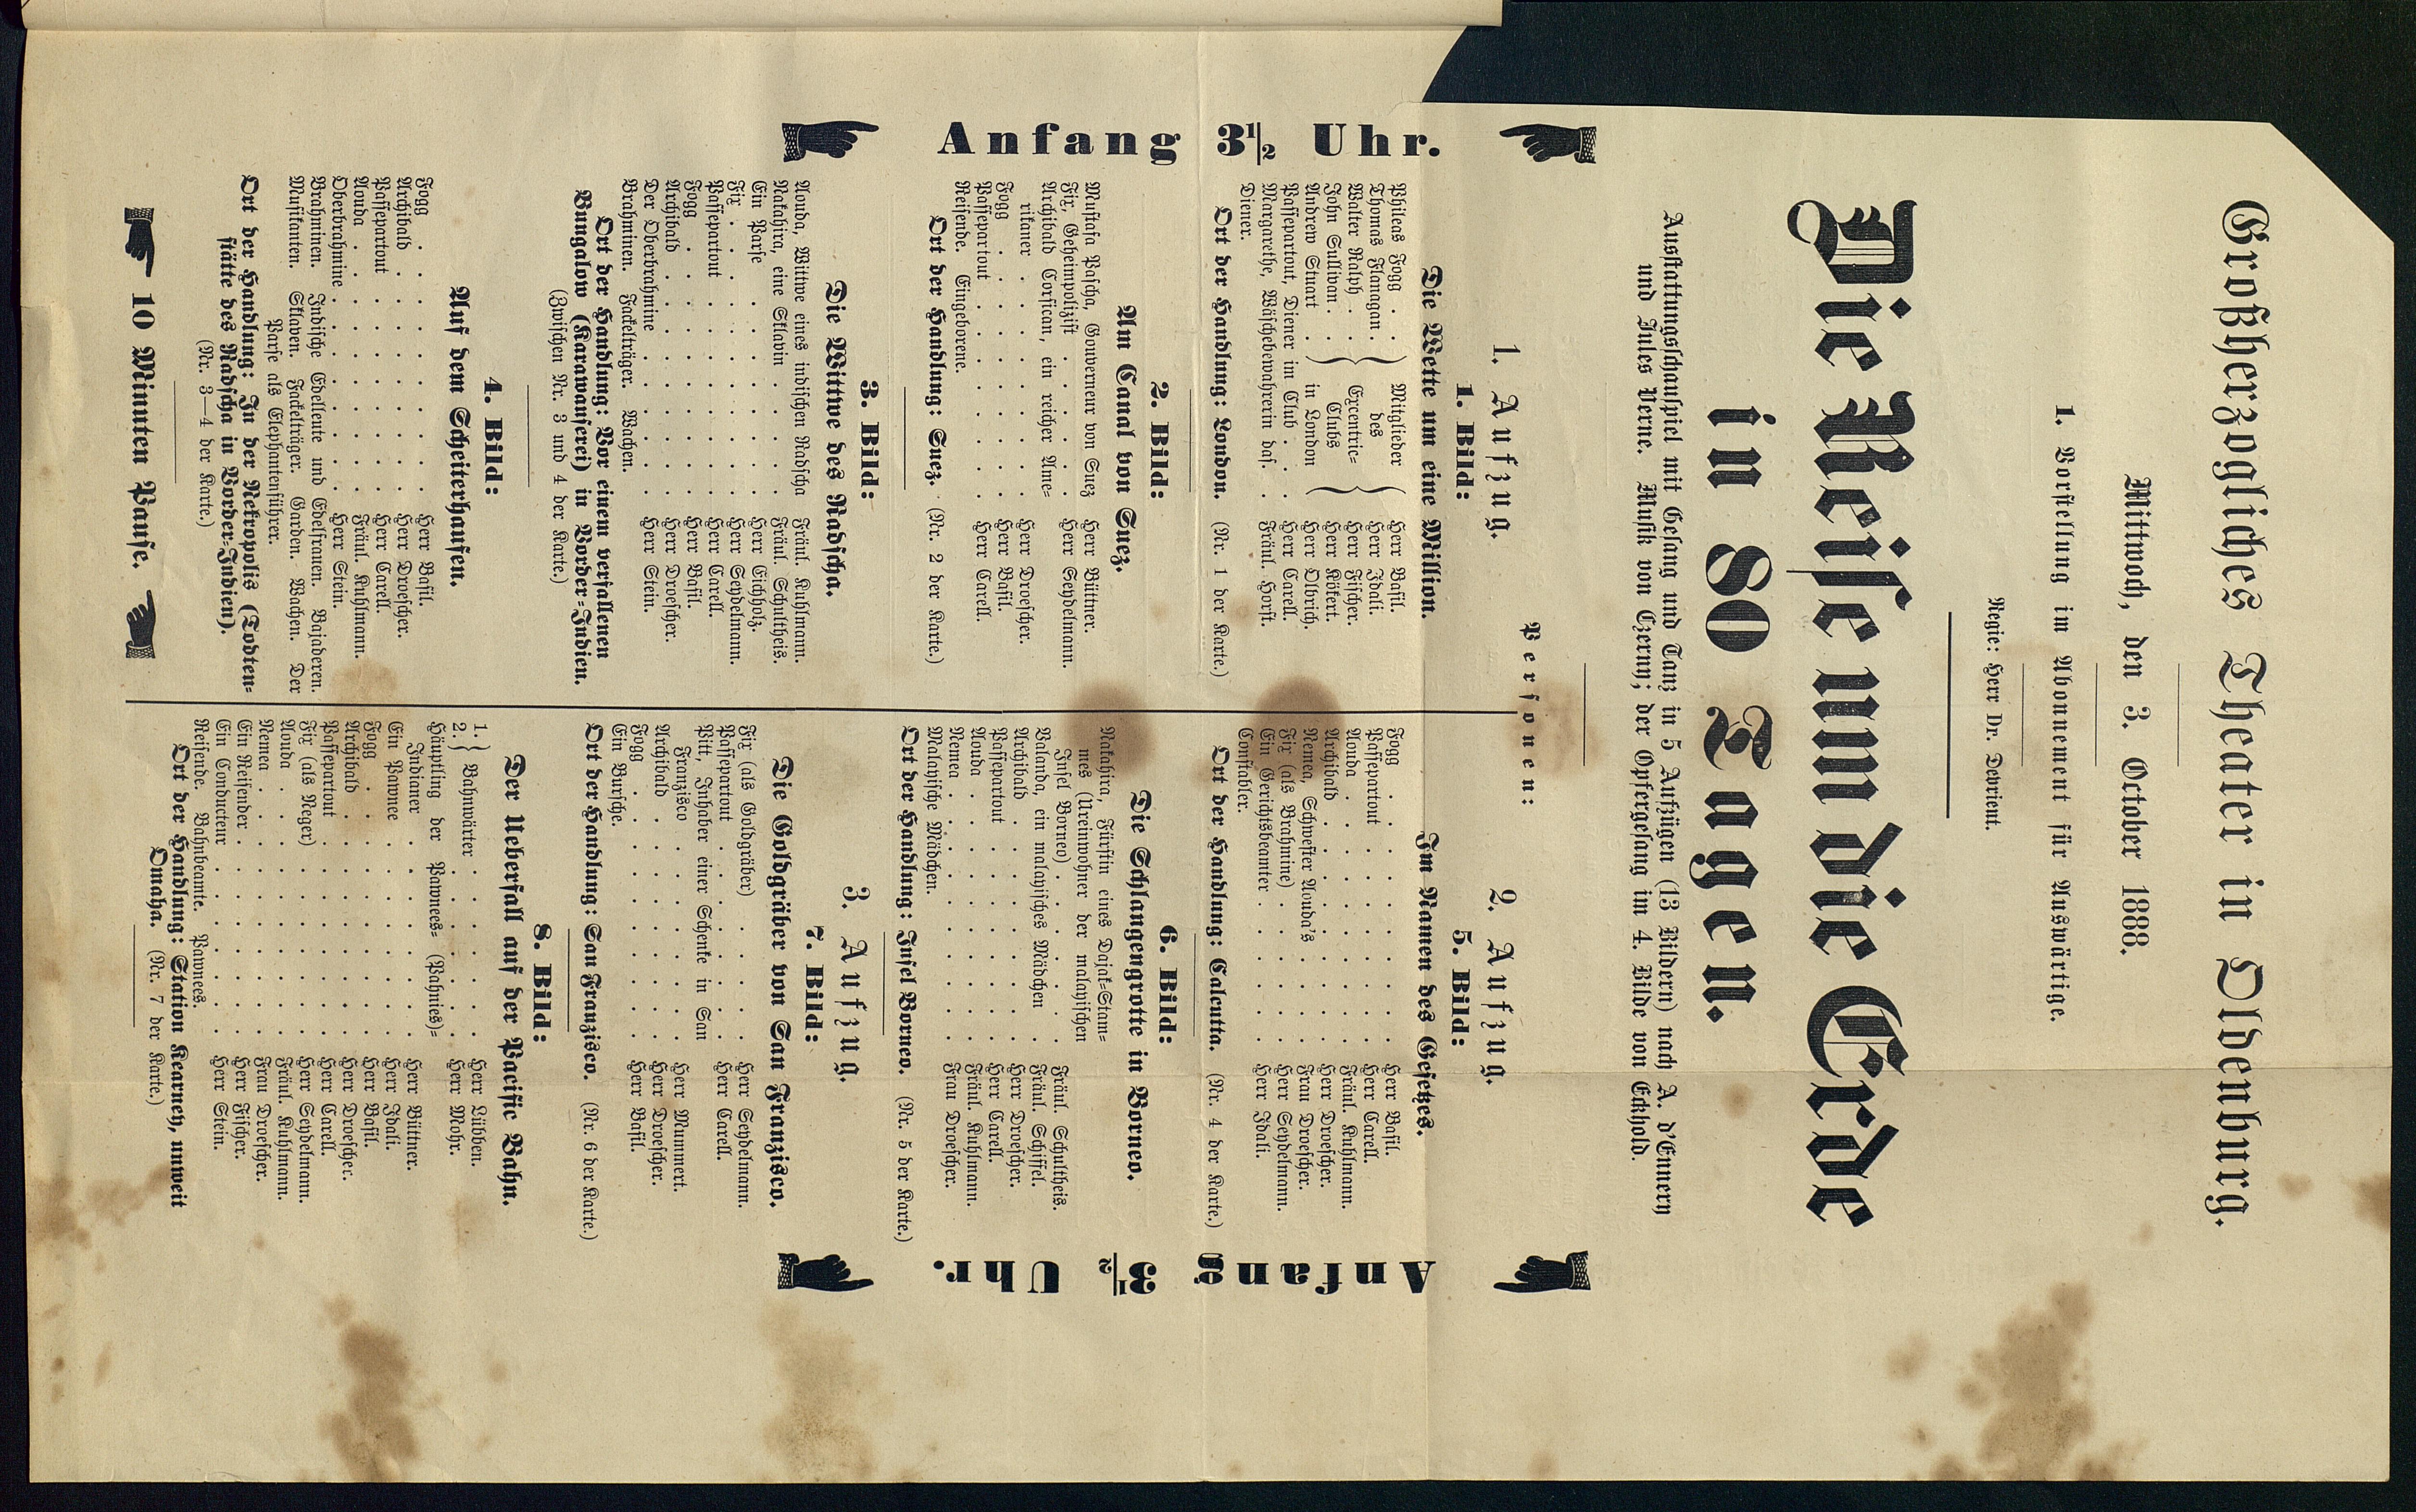 Großherzogliches Theater in Oldenburg.
Mittwoch, den 3. October 1888.
1. Vorstellung im Abonnement für Auswärtige.
Regie: Herr Dr. Devrient.
Die Reise um die Erde
in 80 Tagen.
Ausstattungsschauspiel mit Gesang und Tanz in 5 Aufzügen (13 Bildern) nach A. d'Ennery
und Jules Verne. Musik von Czerny; der Opfergesang im 4. Bilde von Eckhold.
Personen:
Anfang 3½ Uhr.
1. Aufzug.
1. Bild:
Die Wette um eine Million.
Phileas Fogg . . Mitglieder Herr Basil.
Thomas Flanagan . des Herr Idali.
Walter Ralph . . Excentric= Herr Fischer.
John Sullivan . . Clubs Herr Kökert.
Andrew Stuart . in London Herr Olbrich.
Passepartout, Diener im Club . . . Herr Carell.
Margarethe, Wäschebewahrerin das. . Fräul. Horst.
Diener.
Ort der Handlung: London. (Nr. 1 der Karte.)
2. Bild:
Am Canal von Suez.
Mustafa Pascha, Gouverneur von Suez Herr Büttner.
Fix, Geheimpolizist . . . . . . Herr Seydelmann.
Archibald Corsican, ein reicher Ame=
rikaner . . . . . . . . Herr Droescher.
Fogg . . . . . . . . . Herr Basil.
Passepartout . . . . . . . Herr Carell.
Reisende. Eingeborene.
Ort der Handlung: Suez. (Nr. 2 der Karte.)
3. Bild:
Die Wittwe des Radscha.
Aouda, Wittwe eines indischen Radscha Fräul. Kuhlmann.
Nakahira, eine Sklavin . . . . . Fräul. Schultheis.
Ein Parse . . . . . . . . Herr Eichholz.
Fix . . . . . . . . . . Herr Seydelmann.
Passepartout . . . . . . . Herr Carell.
Fogg . . . . . . . . . Herr Basil.
Archibald . . . . . . . . Herr Droescher.
Der Oberbrahmine . . . . . . Herr Stein.
Brahminen. Fackelträger. Wachen.
Ort der Handlung: Vor einem verfallenen
Bungalow (Karawanserei) in Vorder=Indien.
(Zwischen Nr. 3 und 4 der Karte.)
4. Bild:
Auf dem Scheiterhaufen.
Fogg . . . . . . . . . Herr Basil.
Archibald . . . . . . . . Herr Droescher.
Passepartout . . . . . . . Herr Carell.
Aouda . . . . . . . . . Fräul. Kuhlmann.
Oberbrahmine . . . . . . . Herr Stein.
Brahminen. Indische Edelleute und Edelfrauen. Bajaderen.
Musikanten. Sklaven. Fackelträger. Garden. Wachen. Der
Parse als Elephantenführer.
Ort der Handlung: In der Nekropolis (Todten=
stätte des Radscha in Vorder=Indien).
(Nr. 3—4 der Karte.)
10 Minuten Pause.
2. Aufzug.
5. Bild:
Im Namen des Gesetzes.
Fogg . . . . . . . . . Herr Basil.
Passepartout . . . . . . . Herr Carell.
Aouda . . . . . . . . . Fräul. Kuhlmann.
Archibald . . . . . . . . Herr Droescher.
Nemea, Schwester Aouda's . . . . Frau Droescher.
Fix (als Brahmine) . . . . . . Herr Seydelmann.
Ein Gerichtsbeamter . . . . . . Herr Idali.
Constabler.
Ort der Handlung: Calcutta. (Nr. 4 der Karte.)
6. Bild:
Die Schlangengrotte in Borneo.
Nakahira, Fürstin eines Dajak=Stam=
mes (Ureinwohner der malayischen
Insel Borneo) . . . . . . Fräul. Schultheis.
Balanda, ein malayisches Mädchen . Fräul. Schiffel.
Archibald . . . . . . . . Herr Droescher.
Passepartout . . . . . . . Herr Carell.
Aouda . . . . . . . . . Fräul. Kuhlmann.
Nemea . . . . . . . . . Frau Droescher.
Malayische Mädchen.
Ort der Handlung: Insel Borneo. (Nr. 5 der Karte.)
3. Aufzug.
7. Bild:
Die Goldgräber von San Franzisco.
Fix (als Goldgräber) . . . . . Herr Seydelmann.
Passepartout . . . . . . . Herr Carell.
Pitt, Inhaber einer Schenke in San
Franzisco . . . . . . . Herr Mummert.
Archibald . . . . . . . . Herr Droescher.
Fogg . . . . . . . . . Herr Basil.
Ein Bursche.
Ort der Handlung: San Franzisco. (Nr. 6 der Karte.)
8. Bild:
Der Ueberfall auf der Pacific Bahn.
1. } Bahnwärter . . . . . . . Herr Lübben.
2. } . . . . . . . Herr Mohr.
Häuptling der Pawnees= (Pahnies)=
Indianer . . . . . . . Herr Büttner.
Ein Pawnee . . . . . . . Herr Idali.
Fogg . . . . . . . . . Herr Basil.
Archibald . . . . . . . . Herr Droescher.
Passepartout . . . . . . . Herr Carell.
Fix (als Neger) . . . . . . . Herr Seydelmann.
Aouda . . . . . . . . . Fräul. Kuhlmann.
Nemea . . . . . . . . . Frau Droescher.
Ein Reisender . . . . . . . Herr Fischer.
Ein Conducteur . . . . . . . Herr Stein.
Reisende. Bahnbeamte. Pawnees.
Ort der Handlung: Station Kearney, unweit
Omaha. (Nr. 7 der Karte.)
Anfang 3½ Uhr.